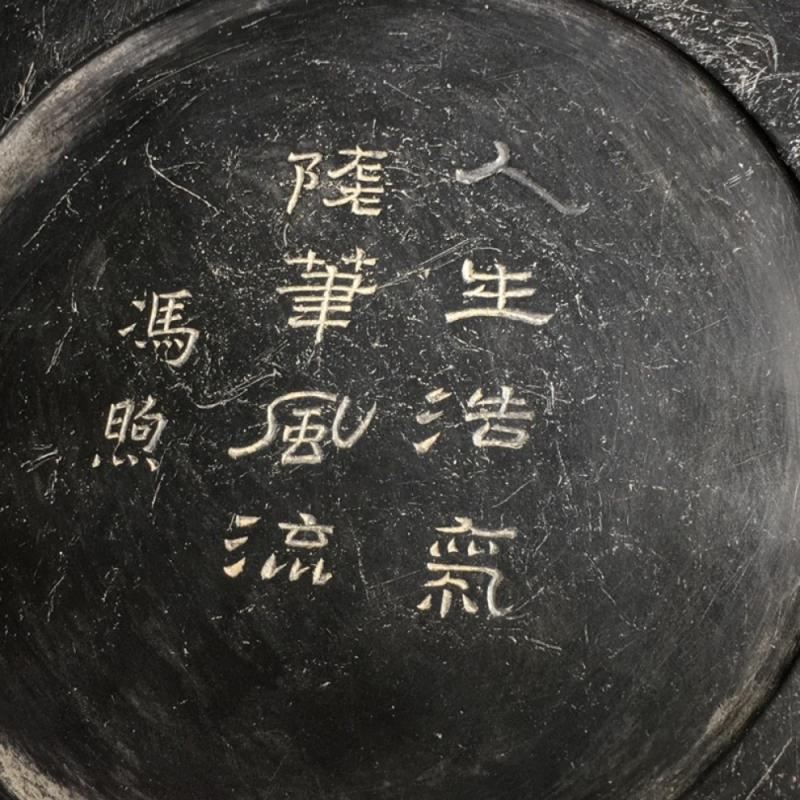 人生浩氣
筆風流
馮煦